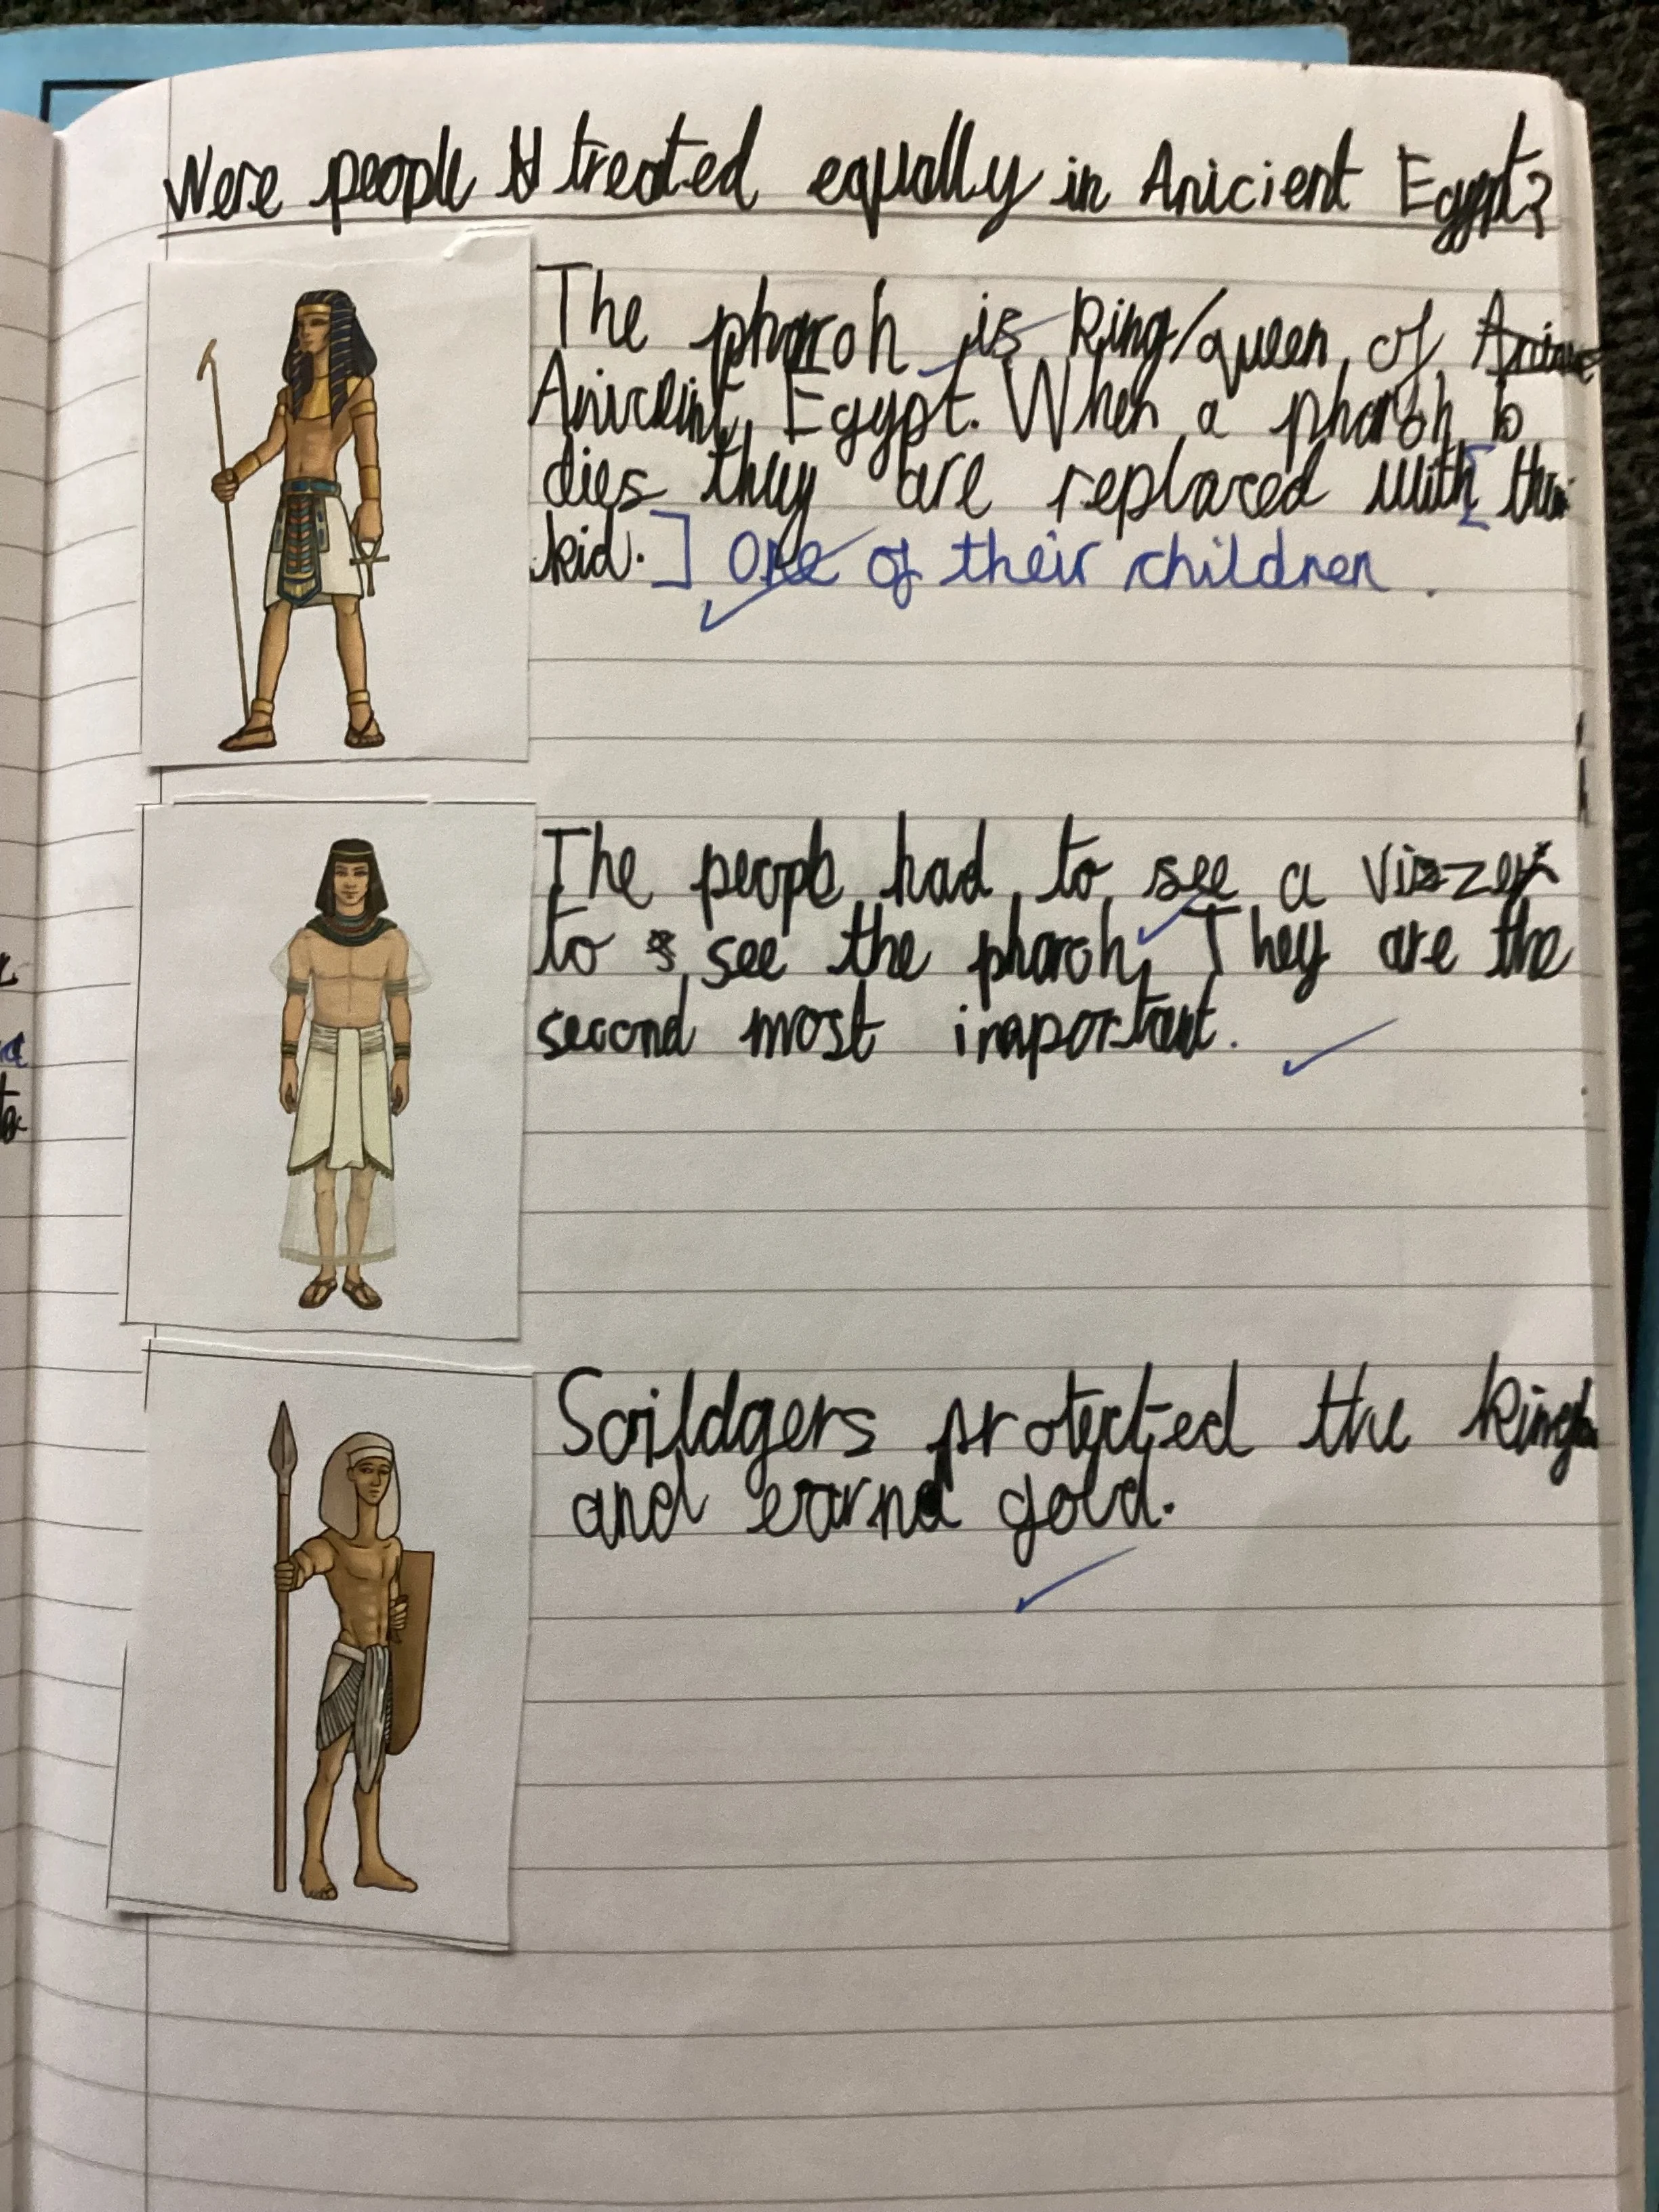 Were people treated equally in Anicient Egypt?
The pharoh is king/queen of
Anicient Egypt. When a pharoh
dies they are replaced with
kid. One of their children.
The people had to see a vizzer
to see the pharoh. They are the
second most inportant.
Soildgers protected the
and earnd gold.